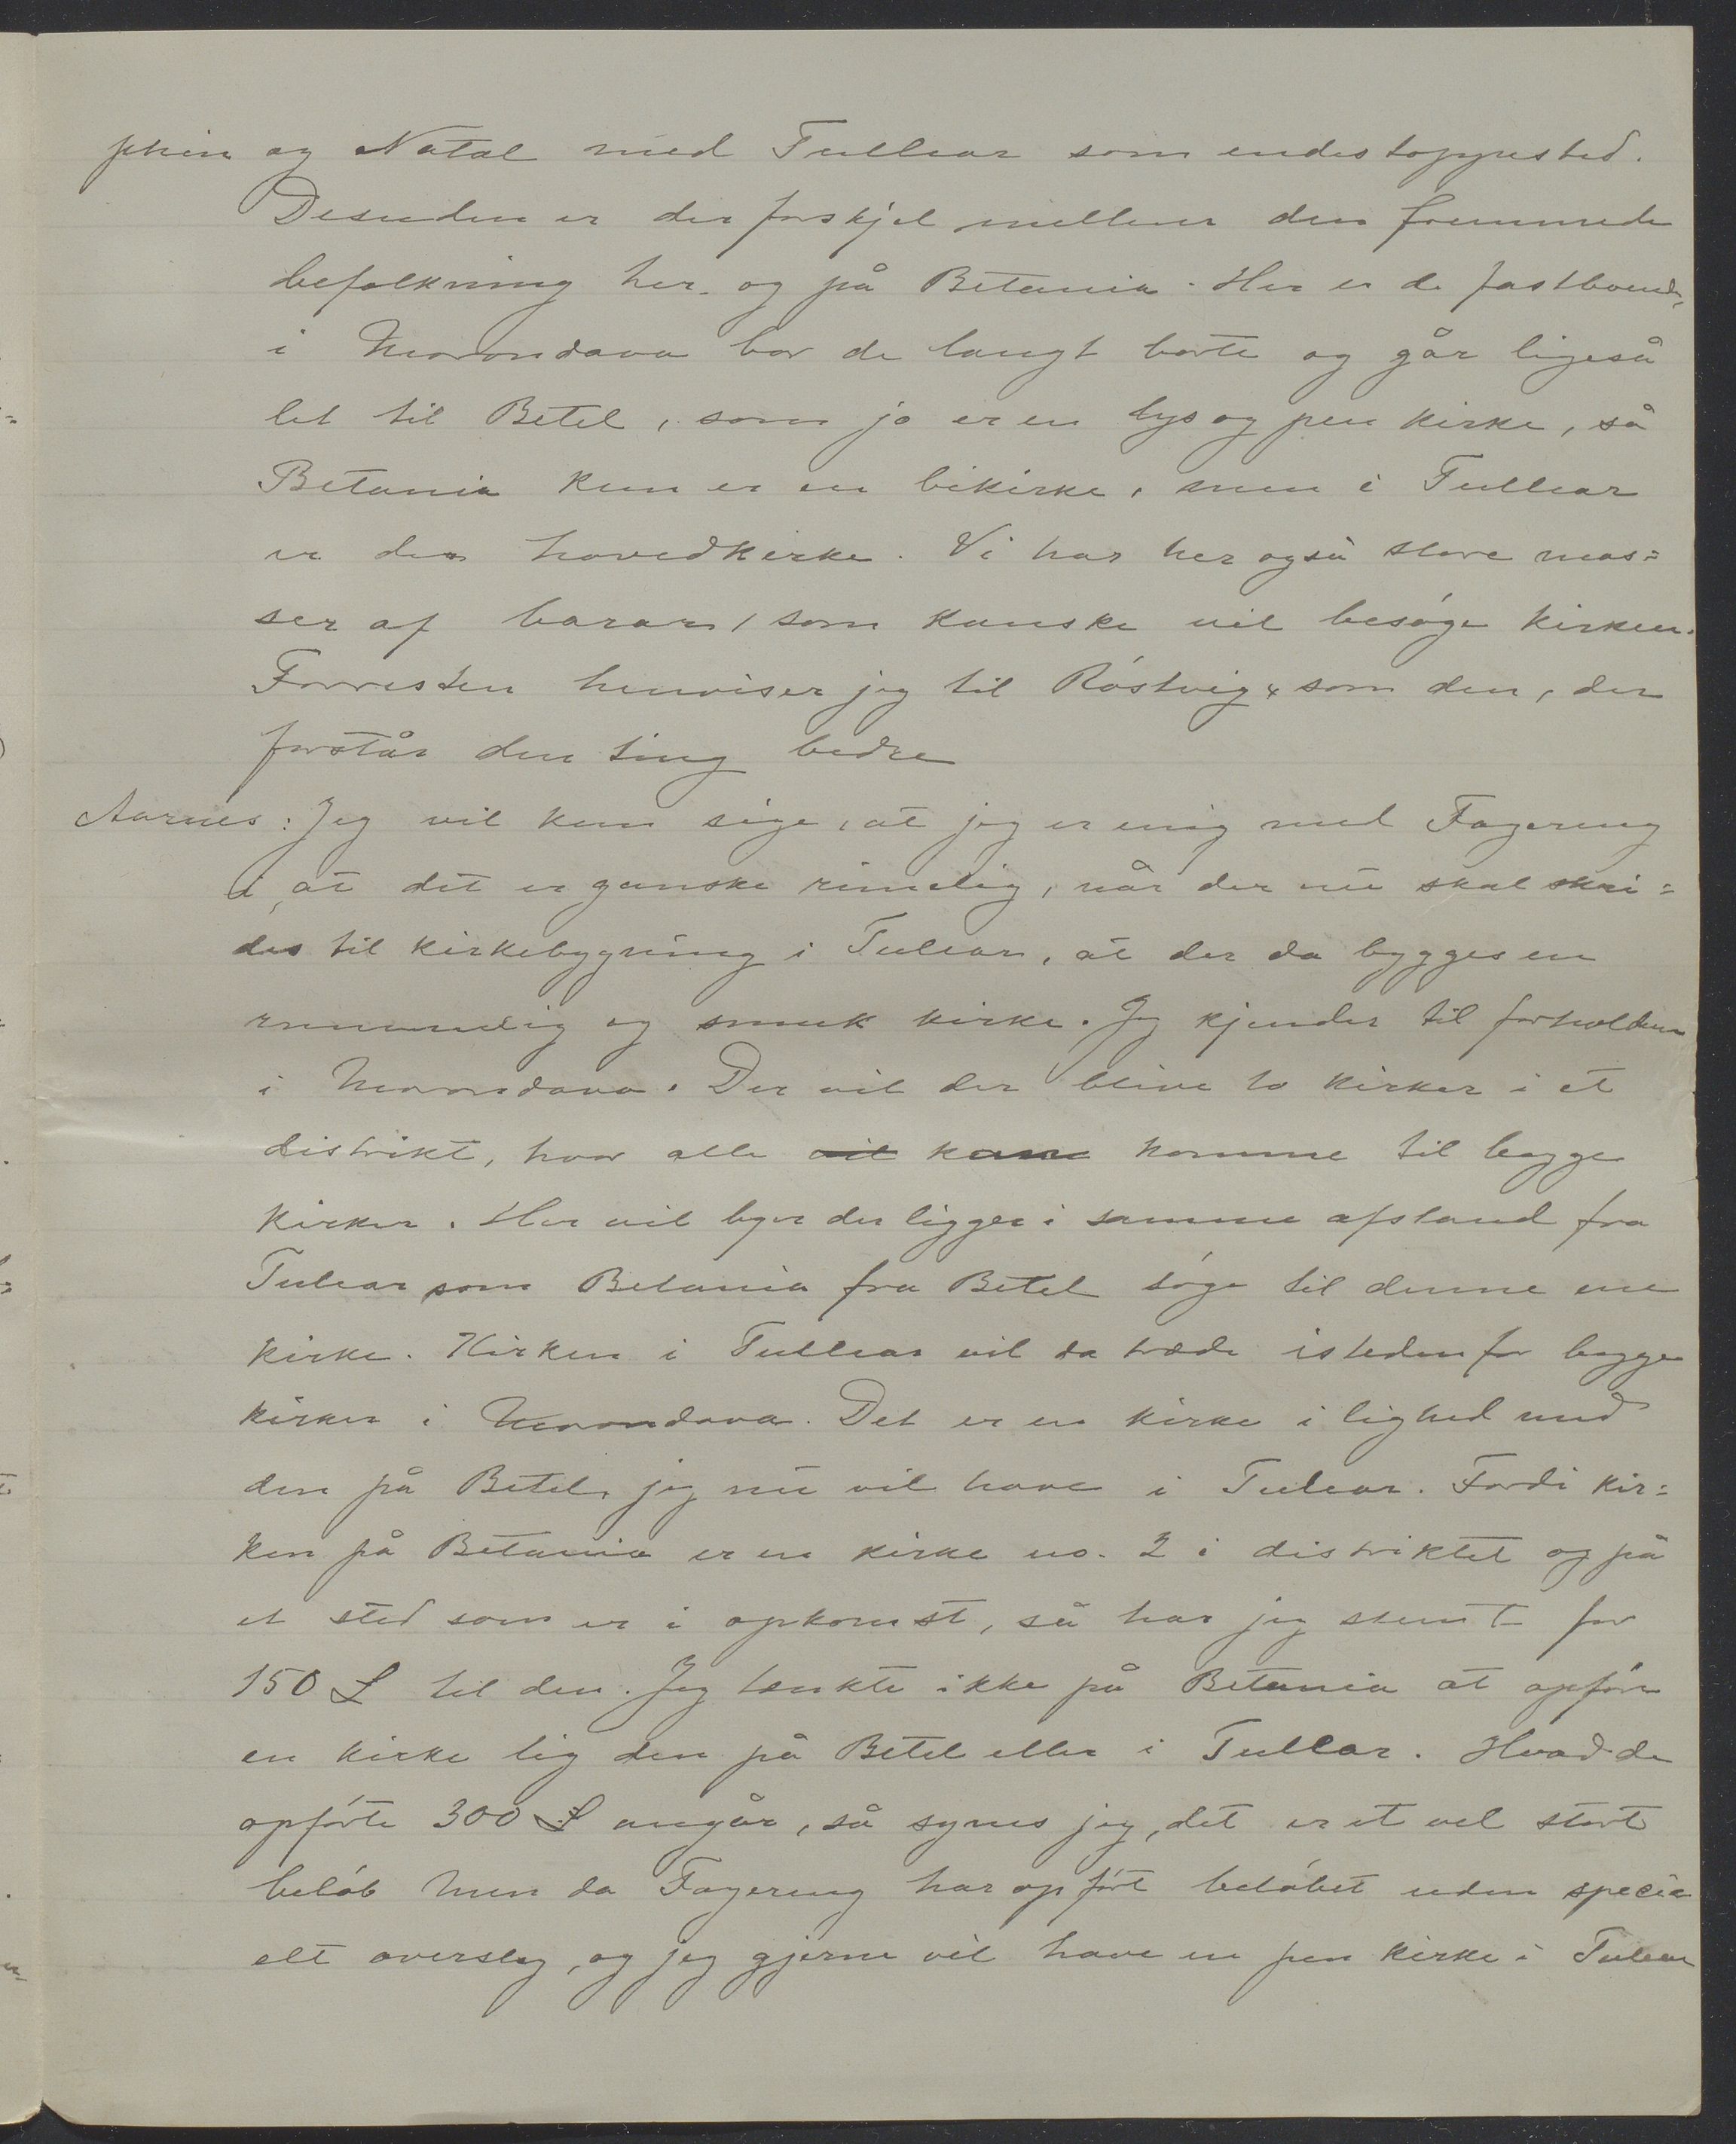 phin og Natal med Tullear som endestoppested.
Desuden er der forskjel mellem den fremmede
befolkning her og på Betania. Her er de fastboende,
i Morondava bor de langt borte og går ligeså
let til Betel, som jo er en lys og pen kirke, så
Betania kun er en bikirke, men i Tullear
er den hovedkirke. Vi har her også store mas=
ser af barar, som kanske vil besøge kirken.
Forresten henviser jeg til Røstvig, som den, der
forstår den ting bedre
Aarnes: Jeg vil kun sige, at jeg er enig med Fagereng
i, at det er ganske rimelig, når der nu skal skri=
des til kirkebygning i Tulear, at der da bygges en
rummelig og smuk kirke. Jeg kjender til forholdene
i Morondava. Der vil der blive to kirker i et
distrikt, hvor alle vil kan komme til begge
kirker. Her vil byer der ligger i samme afstand fra
Tulear som Betania fra Betel søge til denne ene
kirke. Kirken i Tullear vil da træde istedenfor begge
kirker i Morondava. Det er en kirke i lighed med
den på Betel, jeg nu vil have i Tulear. Fordi kir=
ken på Betania er en kirke no. 2 i distriktet og på
et sted som er i opkomst, så har jeg stemt for
150 £ til den. Jeg tænkte ikke på Betania at opføre
en kirke lig den på Betel eller i Tullear. Hvad de
opførte 300 £ angår, så synes jeg, det er et vel stort
beløb men da Fagereng har opført beløbet uden speci
elt overslag, og jeg gjerne vil have en pen kirke i Tulear